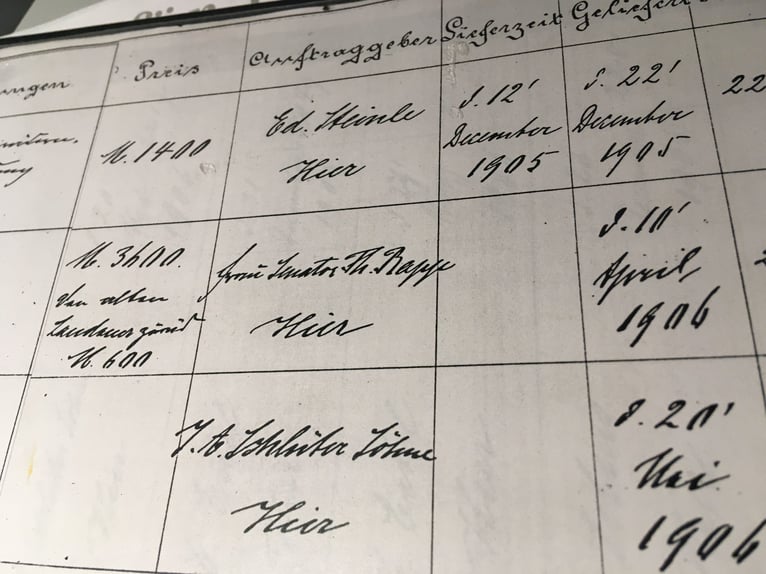 Preis Auftraggeber Lieferzeit Geliefert
M. 1400
Ed. Steinle
Hier
d. 12'
December
1905
d. 22'
December
1905
22
M. 3600.
den alten
Landauer zurück
M. 600
Frau Senator Th. Rappe
Hier
d. 10'
April
1906
J. A. Schlüter Söhne
Hier
d. 20'
Mai
1906